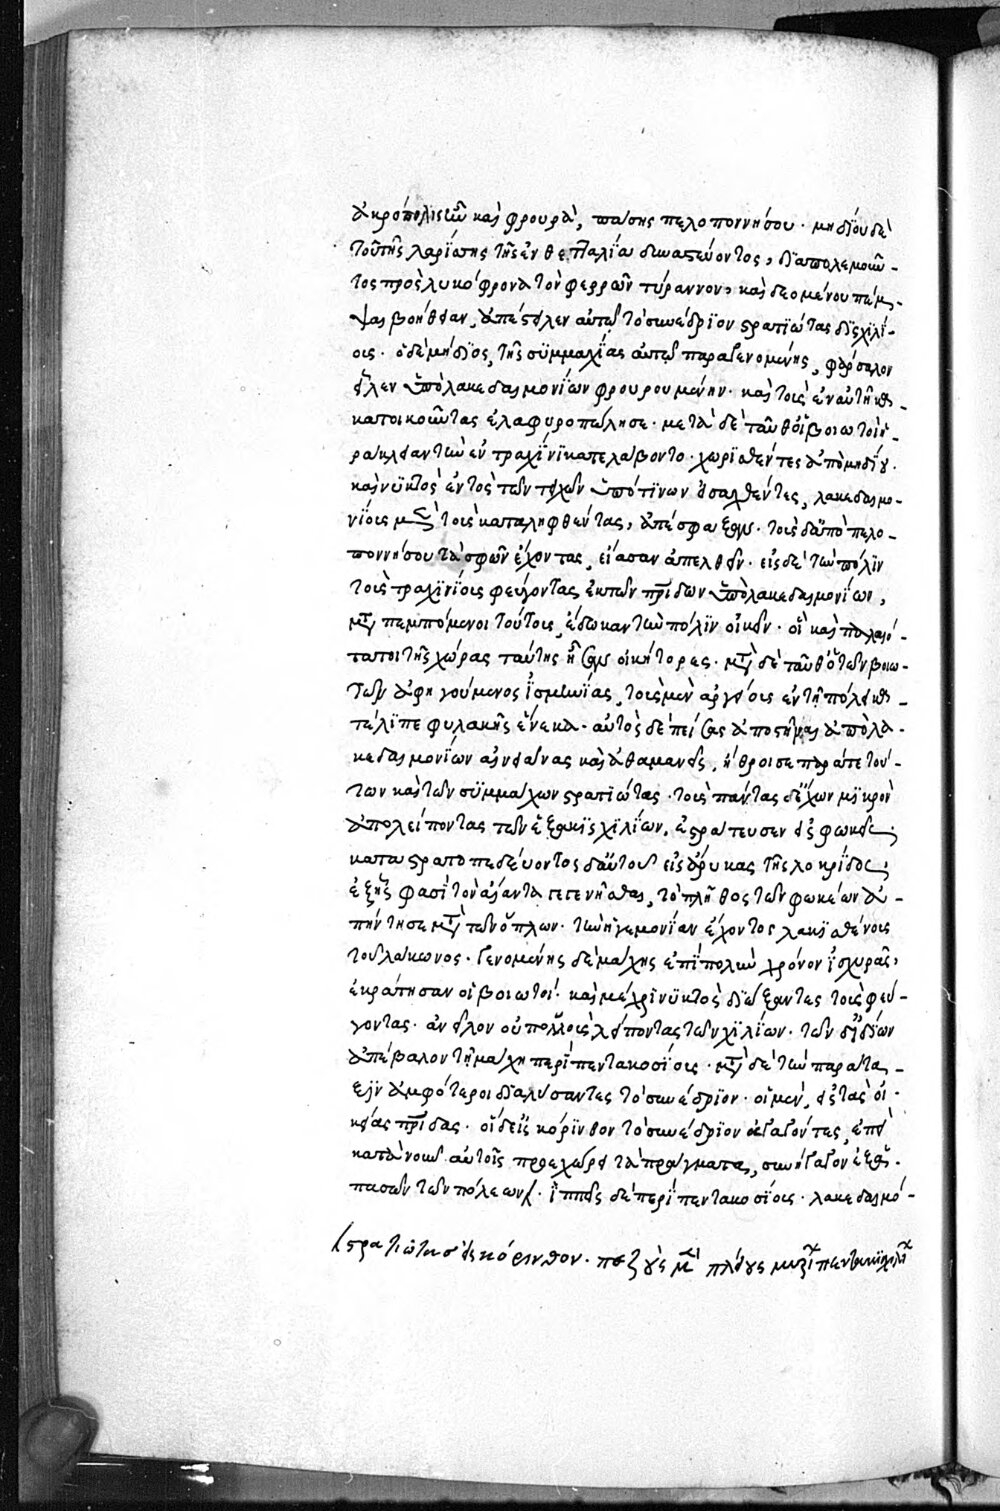 ἀκρόπολις ὢν καὶ φρουρὰ, πάσης πελοποννήσου· μηδίου δὲ
τοῦ τῆς λαρίσσης τῆς ἐν θετταλία δυναστεύοντος, διαπολεμοῦν-
τος πρὸς λυκόφρονα τὸν φερρῶν τύραννον, καὶ δεομένου πέμ-
ψαι βοήθειαν, ἀπέστειλεν αὐτῶ τὸ συνέδριον στρατιώτας δισχιλί-
οις· ὁ δὲ μήδιος, τῆς συμμαχίας αὐτῶ παραγενομένης, φάρσαλον
εἷλεν ὑπὸ λακεδαιμονίων φρουρουμένην· καὶ τοὺς ἐν αὐτῆ
κατοικοῦντας ἐλαφυροπώλησε· μετὰ δὲ ταῦθ' οἱ βοιωτοὶ ἡ-
ράκλειαν τὴν ἐν τραχῖνι κατελάβοντο· χωρισθέντες ἀπὸ μηδίου·
καὶ νυκτὸς ἐντὸς τῶν τειχῶν ὑπό τινων εἰσαχθέντες, λακεδαιμο-
νίοις μὲν τοὺς καταληφθέντας, ἀπέσφαξαν· τοὺς δ' ἀπὸ πελο-
ποννήσου τὰ σφῶν ἔχοντας, εἴασαν ἀπελθεῖν· εἰς δὲ τὴν πόλιν
τοὺς τραχινίοις φεύγοντας ἐκ τῶν πατρίδων ὑπὸ λακεδαιμονίων,
μεταπεμπόμενοι τούτοις, ἔδωκαν τὴν πόλιν οἰκεῖν· οἳ καὶ παλαιό-
τατοι τῆς χώρας ταύτης ἦσαν οἰκήτορες· μετὰ δὲ ταῦθ' ὁ τῶν βοιω-
τῶν ἀφηγούμενος ἰσμηνίας, τοὺς μὲν ἀργείοις ἐν τῆ πόλει κα-
τέλιπε φυλακῆς ἕνεκα· αὐτὸς δὲ πείσας ἀποστῆναι ἀπὸ λα-
κεδαιμονίων αἰνειᾶνας καὶ ἀθαμανεῖς, ἤθροισε παρά τε τού-
των καὶ τῶν συμμάχων στρατιώτας· τοὺς πάντας δ' ἔχων μικρὸν
ἀπολείποντας τῶν ἑξακισχιλίων, ἐστράτευσεν εἰς φωκεῖς·
καταστρατοπεδεύοντος δ' αὐτοῦ εἰς ἀρύκας τῆς λοκρίδος·
ἐξ ἧς φασὶ τὸν αἴαντα γεγενῆσθαι, τὸ πλῆθος τῶν φωκέων ἀ-
πήντησε μετὰ τῶν ὅπλων· τὴν ἡγεμονίαν ἔχοντος λακισθένοις
τοῦ λάκωνος· γενομένης δὲ μάχης ἐπὶ πολὺν χρόνον ἰσχυρᾶς,
ἐκράτησαν οἱ βοιωτοί· καὶ μέχρι νυκτὸς διώξαντες τοὺς φεύ-
γοντας· ἀνεῖλον οὐ πολλοὺς λείποντας τῶν χιλίων· τῶν δ' ἰδίων
ἀπέβαλον τῆ μάχη περὶ πεντακοσίοις· μετὰ δὲ τὴν παράτα-
ξιν ἀμφότεροι διαλύσαντες τὸ συνέδριον· οἱ μὲν, εἰς τὰς οἰ-
κείας πατρίδας· οἱ δ' εἰς κόρινθον τὸ συνέδριον ἀγαγόντες, ἐπεὶ
κατὰ νοῦν αὐτοῖς προεχώρει τὰ πράγματα, συνήγαγον ἐξ ἁ-
πασῶν τῶν πόλεων· ἱππεῖς δὲ περὶ πεντακοσίοις· λακεδαιμό-
στρατιώτας εἰς κόρινθον· πεζοὺς μὲν πλείους